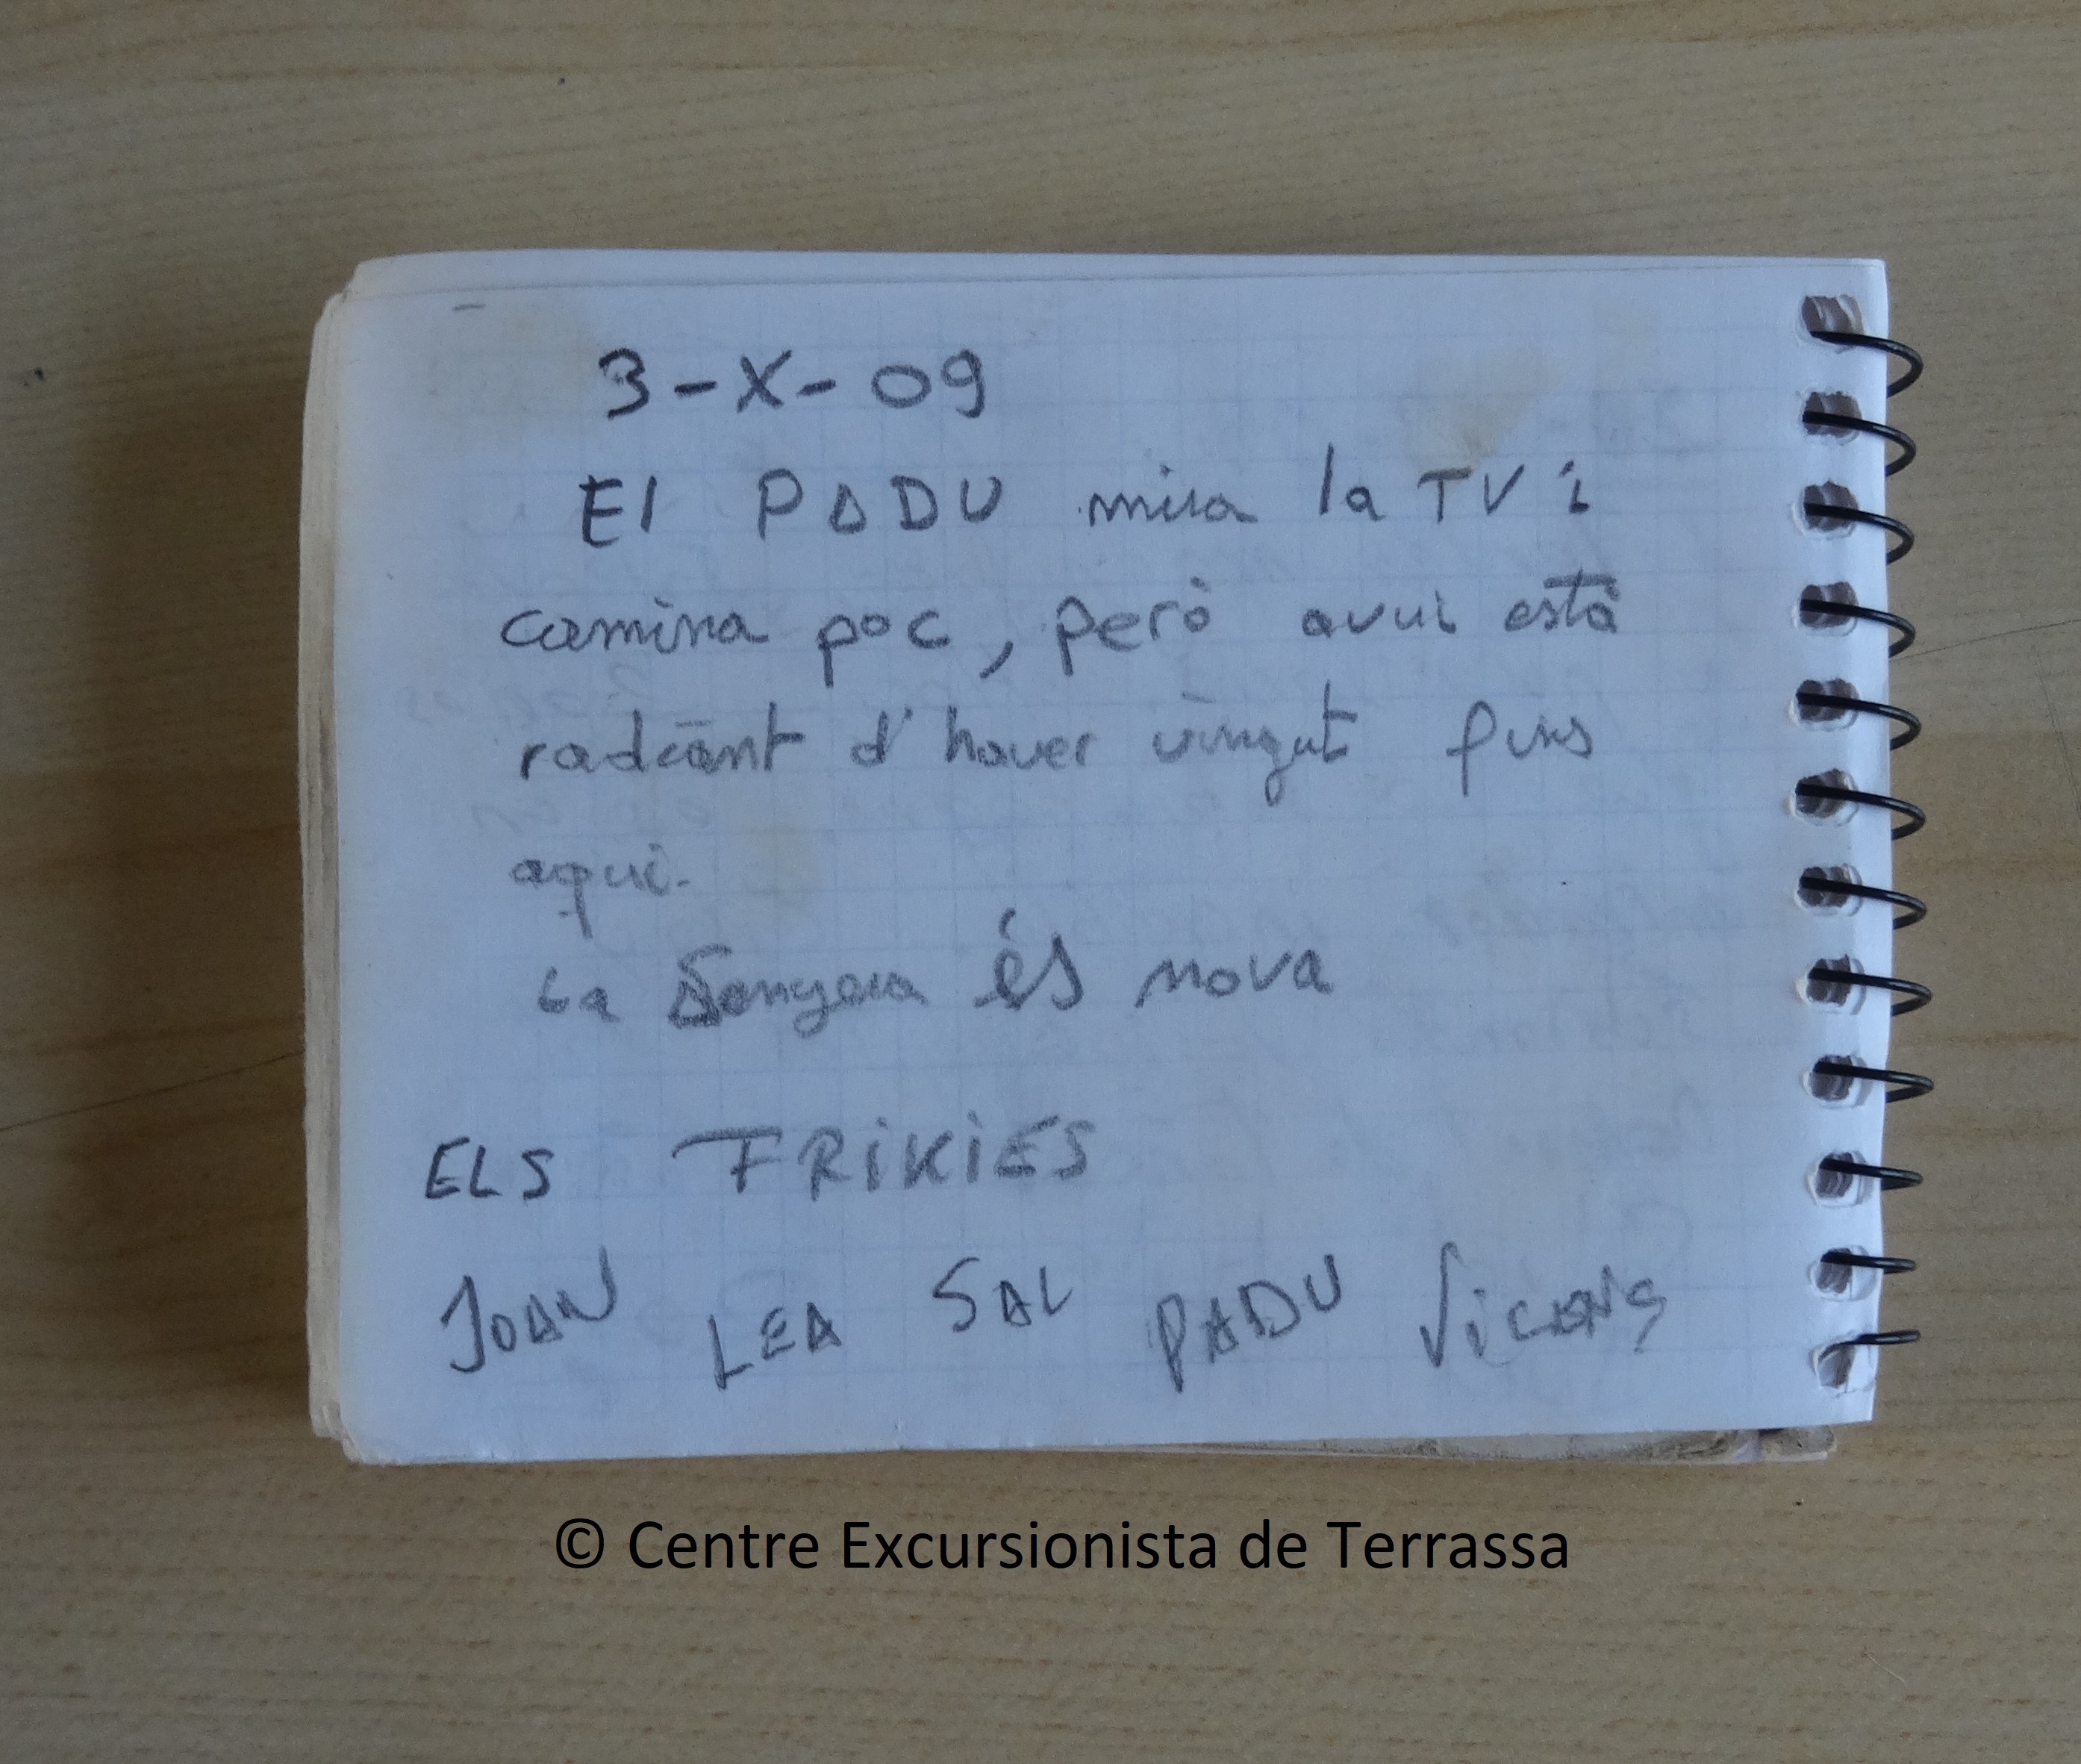 3-X-09
El PADU mira la TV i
camina poc, però avui està
radiant d'haver vingut fins
aquí.
La Senyera és nova
ELS FRiKiES
JOAN LEA SAL PADU ViCENÇ
© Centre Excursionista de Terrassa